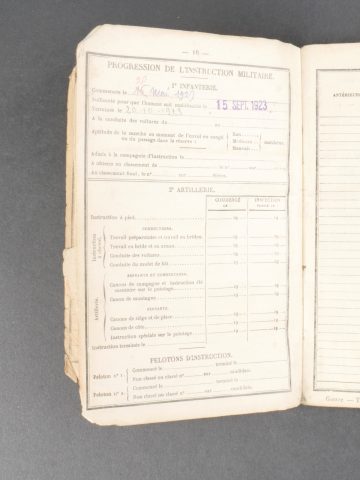 — 16 —
PROGRESSION DE L'INSTRUCTION MILITAIRE.
1° INFANTERIE.
Commencée le Mai 1923
Suffisante pour que l'homme soit mobilisable le 15 SEPT. 1923
Terminée le
A la conduite des voitures du
Aptitude de la marche au moment de l'envoi en congé
ou du passage dans la réserve :
Bon
Médiocre
Mauvais
marcheur.
Admis à la compagnie d'instruction le
A obtenu au classement de le n° sur
Au classement final, le n° sur élèves.
2° ARTILLERIE.
COMMENCÉ
LE
INSPECTION
PASSÉE LE
Instruction à pied 19 19
Instruction
à cheval.
CONDUCTEURS.
Travail préparatoire et travail en bridon 19 19
Travail en bride et en armes 19 19
Conduite des voitures 19 19
Conduite du mulet de bât 19 19
Artillerie.
SERVANTS ET CONDUCTEURS.
Canon de campagne et instruction élémentaire sur le pointage 19 19
Canon de montagne 19 19
SERVANTS.
Canons de siège et de place 19 19
Canons de côte 19 19
Instruction spéciale sur le pointage 19 19
Instruction terminée le
PELOTONS D'INSTRUCTION.
Peloton n° 1.
Commencé le terminé le
Non classé ou classé n° sur candidats.
Peloton n° 2.
Commencé le terminé le
Non classé ou classé n° sur candidats.